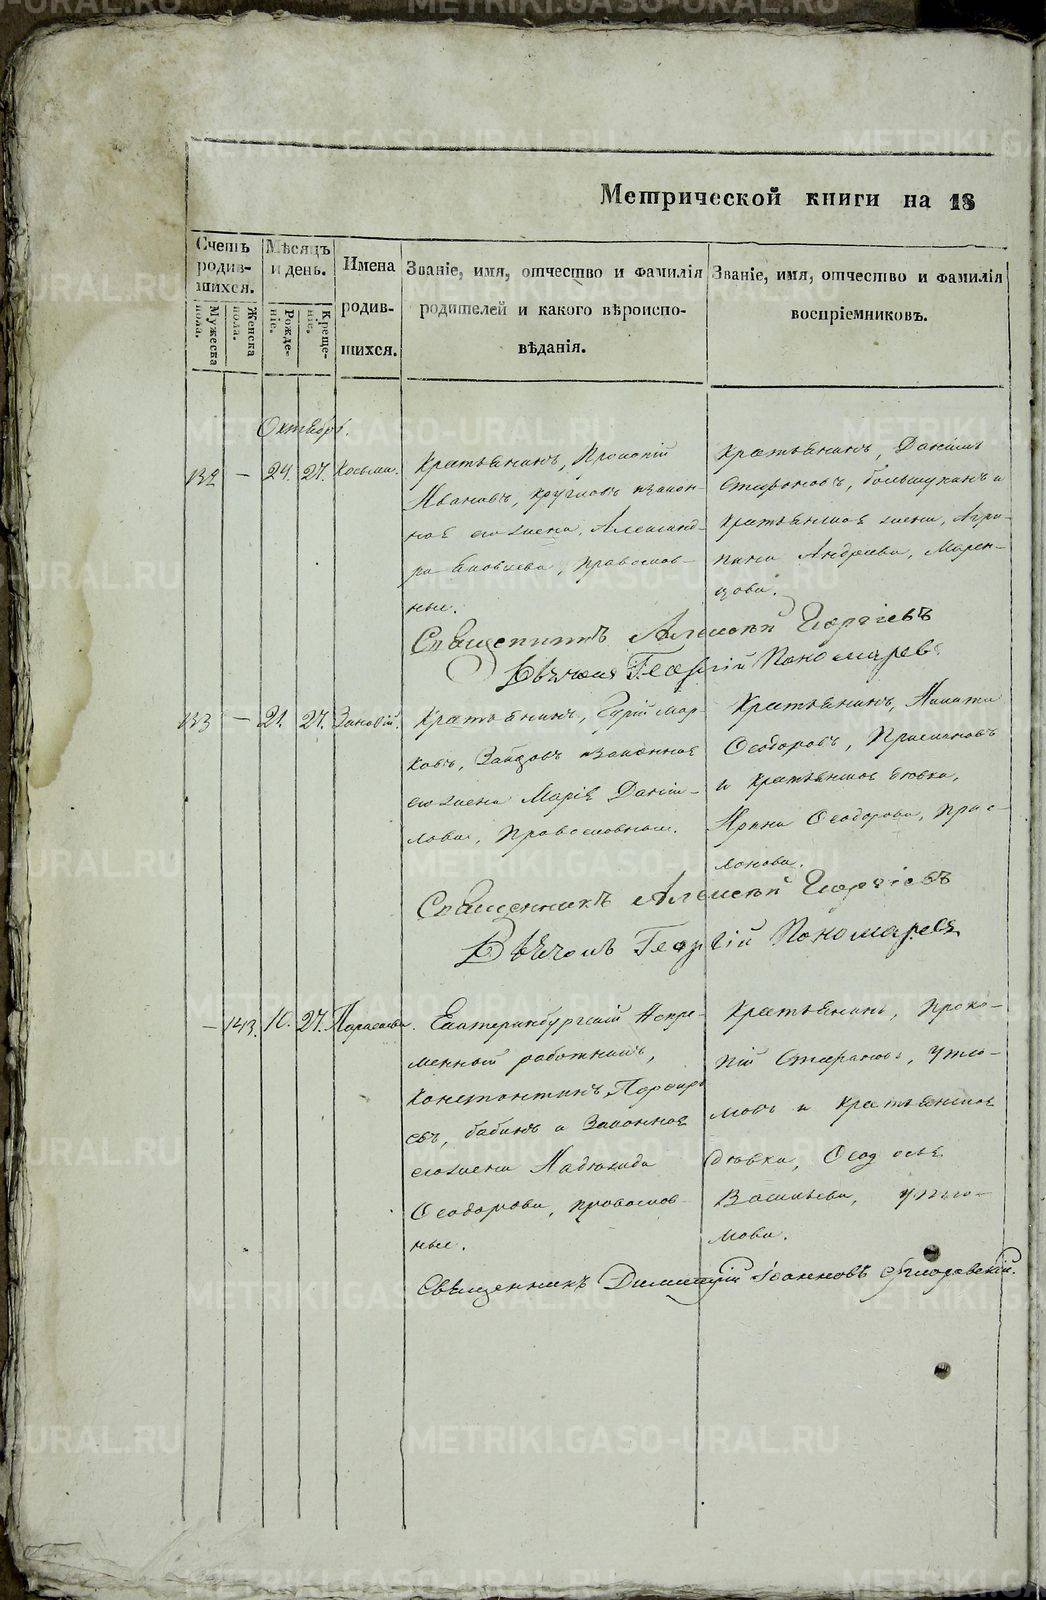 Метрической книги на 18
Счетъ родив-шихся.
Мужеска пола.
Женска пола.
Мѣсяцъ и день.
Рожде-нiе.
Креще-нiе.
Имена родив-шихся.
Званiе, имя, отчество и фамилiя
родителей и какого вѣроиспо-
вѣданiя.
Званiе, имя, отчество и фамилiя
воспрiемниковъ.
Октябрь.
132 — 24. 27. Косьма.
Крестьянинъ, Прокопiй
Ивановъ, Кругловъ и закон-
ная его жена, Александ-
ра Яковлева, православ-
ные.
Крестьянинъ, Данiилъ
Стефановъ, и
крестьянская жена, Агри-
пина Андреева,
Священникъ Алексѣй Георгiевъ
Дьячокъ Георгiй Пономаревъ
133 — 21. 27. Зиновiй.
Крестьянинъ, Гурiй Мар-
ковъ, и законная
его жена Марiя Данiи-
лова, православные.
Крестьянинъ, Никита
Ѳеодоровъ,
и крестьянская дѣвка,
Ирина Ѳеодорова,
Священникъ Алексѣй Георгiевъ
Дьячокъ Георгiй Пономаревъ
— 143. 10. 27. Параскева.
Екатеринбургскiй Непре-
менный работникъ,
Константинъ, Порфирь
евъ, Бабинъ и законная
его жена Надежида
Ѳеодорова, православ-
ные.
Крестьянинъ, Проко-
пiй Стефановъ, Утю-
мовъ и крестьянская
дѣвка, Ѳеодосья
Васильева, Утю-
мова.
Священникъ Димитрiй Iоанновъ
METRIKI.GASO-URAL.RU